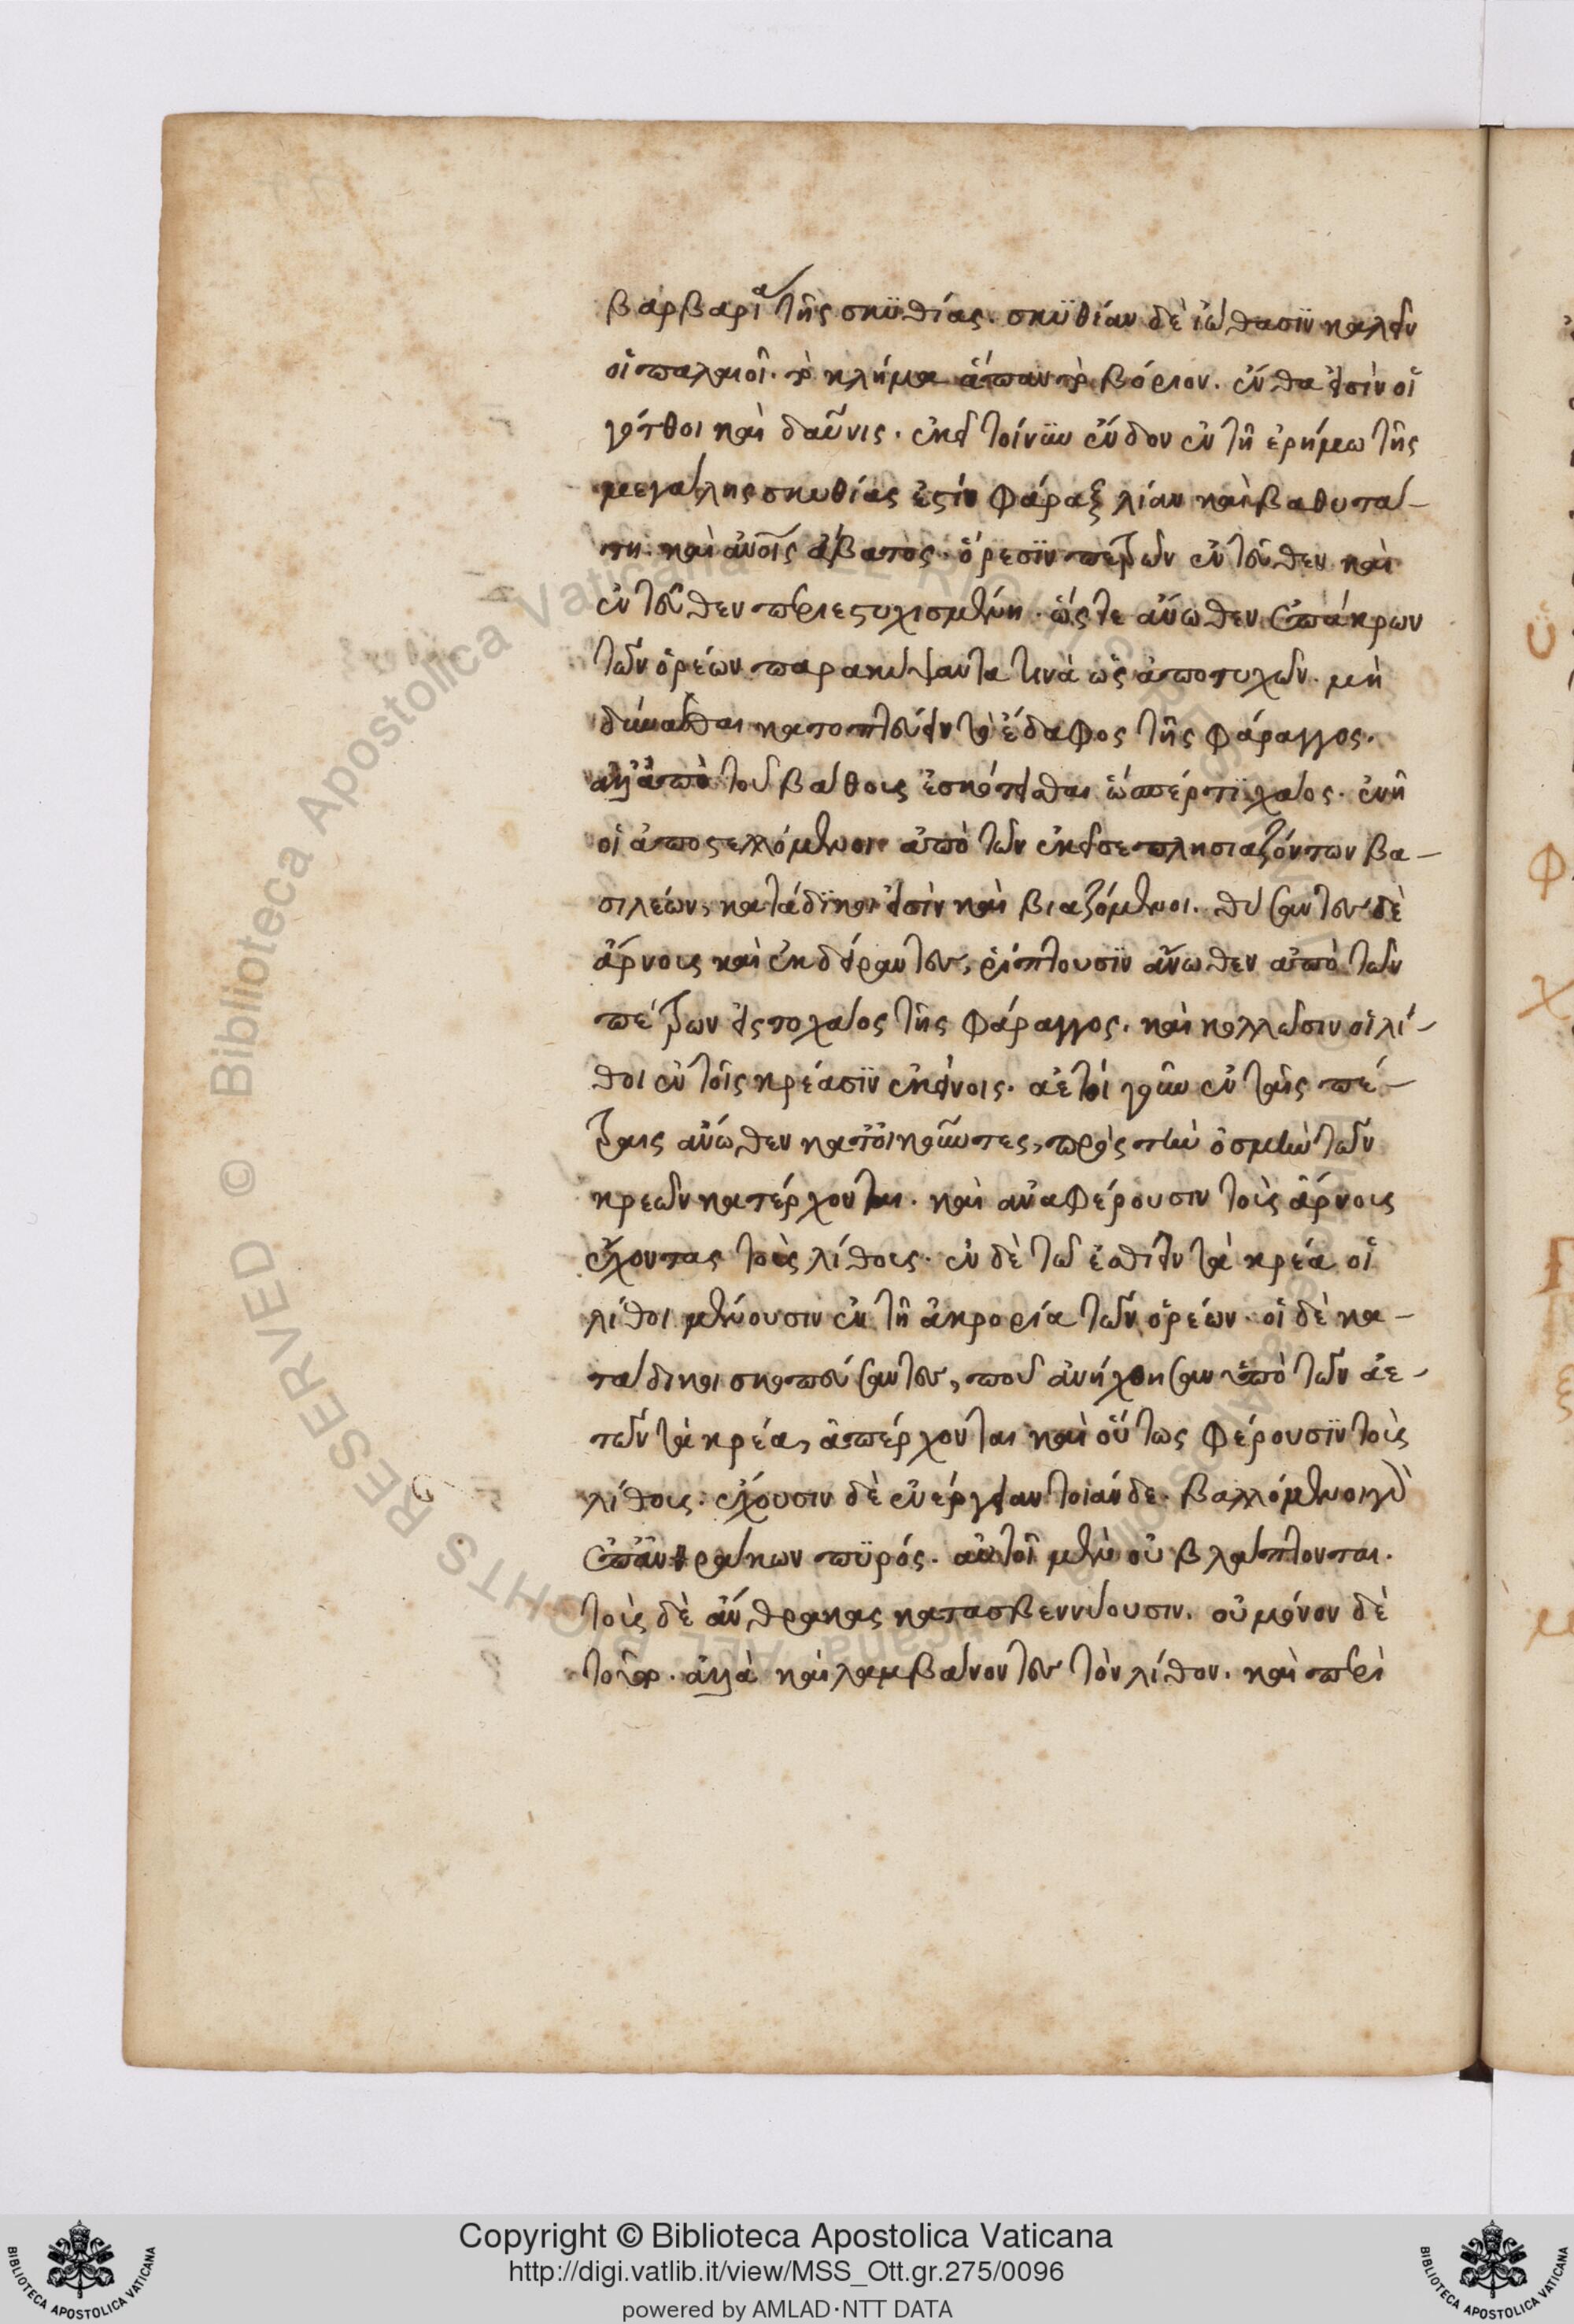 βαρβαρία τῆς σκϋθίας. σκϋθίαν δὲ εἰώθασϊν καλεῖν
οἱ παλαιοὶ. τὸ κλήμα ἅπαν τὸ βόριον. ἔνθα εἰσὶν οἱ
γότθοι καὶ δαῦνις. ἐκεῖ τοίνϋν ἔνδον ἐν τῆ ἐρήμω τῆς
μεγάλης σκυθίας ἐστὶν φάραξ λίαν καὶ βαθυτά-
τη. καὶ ἀνοῖς ἄβατος. ὄρεσϊν πετρῶν ἐντεῦθεν καὶ
ἐντεῦθεν περιεστυχισμένη. ὥστε ἄνωθεν ἐπάκρων
τῶν ὀρέων παρακύψαντα τινὰ ὡς ἀποτυχῶν. μὴ
δύνασθαι κατοπτεύειν τὸ ἔδαφος τῆς φάραγγος.
ἀλλἀπὸ τοῦ βάθους ἐσκόπεῖσθαι ὥσπέρ τϊ χάος. ἐν ἧ
οἱ ἀποστελλόμενοι ἀπὸ τῶν ἐκεῖσε πλησιαζόντων βα-
σιλέων, κατάδϊκοι εἰσὶν καὶ βιαζόμενοι. θύσαντες δὲ
ἄρνους καὶ ἐκδείραντες, ῥίπτουσϊν ἄνωθεν ἀπὸ τῶν
πέτρων εἰς το χάος τῆς φάραγγος. καὶ κολλῶσιν οἱ λί-
θοι ἐν τοῖς κρέασϊν ἐκείνοις. ἀετοί γοῦν ἐν ταῖς πέ-
τραις ἄνωθεν κατοικοῦντες, πρὸς τὴν ὀσμὴν τῶν
κρεῶν κατέρχονται. καὶ ἀναφέρουσιν τοὺς ἄρνους
ἔχοντας τοὺς λίθους. ἐν δὲ τῶ ἐσθίειν τὰ κρέα οἱ
λίθοι μένουσιν ἐν τῆ ἀκρορία τῶν ὀρέων. οἱ δὲ κα-
τάδικοι σκοπεύσαντες, ποῦ ἀνήχθησαν ὑπὸ τῶν ἀε-
τῶν τὰ κρέα, ἀπέρχονται καὶ οὕτως φέρουσϊν τοὺς
λίθους. ἔχουσιν δὲ ἐνέργειαν τοιάνδε. βαλλόμενοι γὰρ
ἐπἀνθράκων πϋρός. αὐτοὶ μὲν οὐ βλάπτονται.
τοὺς δὲ ἄνθρακας κατασβεννύουσιν. οὐ μόνον δὲ
τοῦτο. ἀλλὰ καὶ λαμβάνοντες τὸν λίθον. καὶ περὶ
Copyright © Biblioteca Apostolica Vaticana
http://digi.vatlib.it/view/MSS_Ott.gr.275/0096
powered by AMLAD·NTT DATA